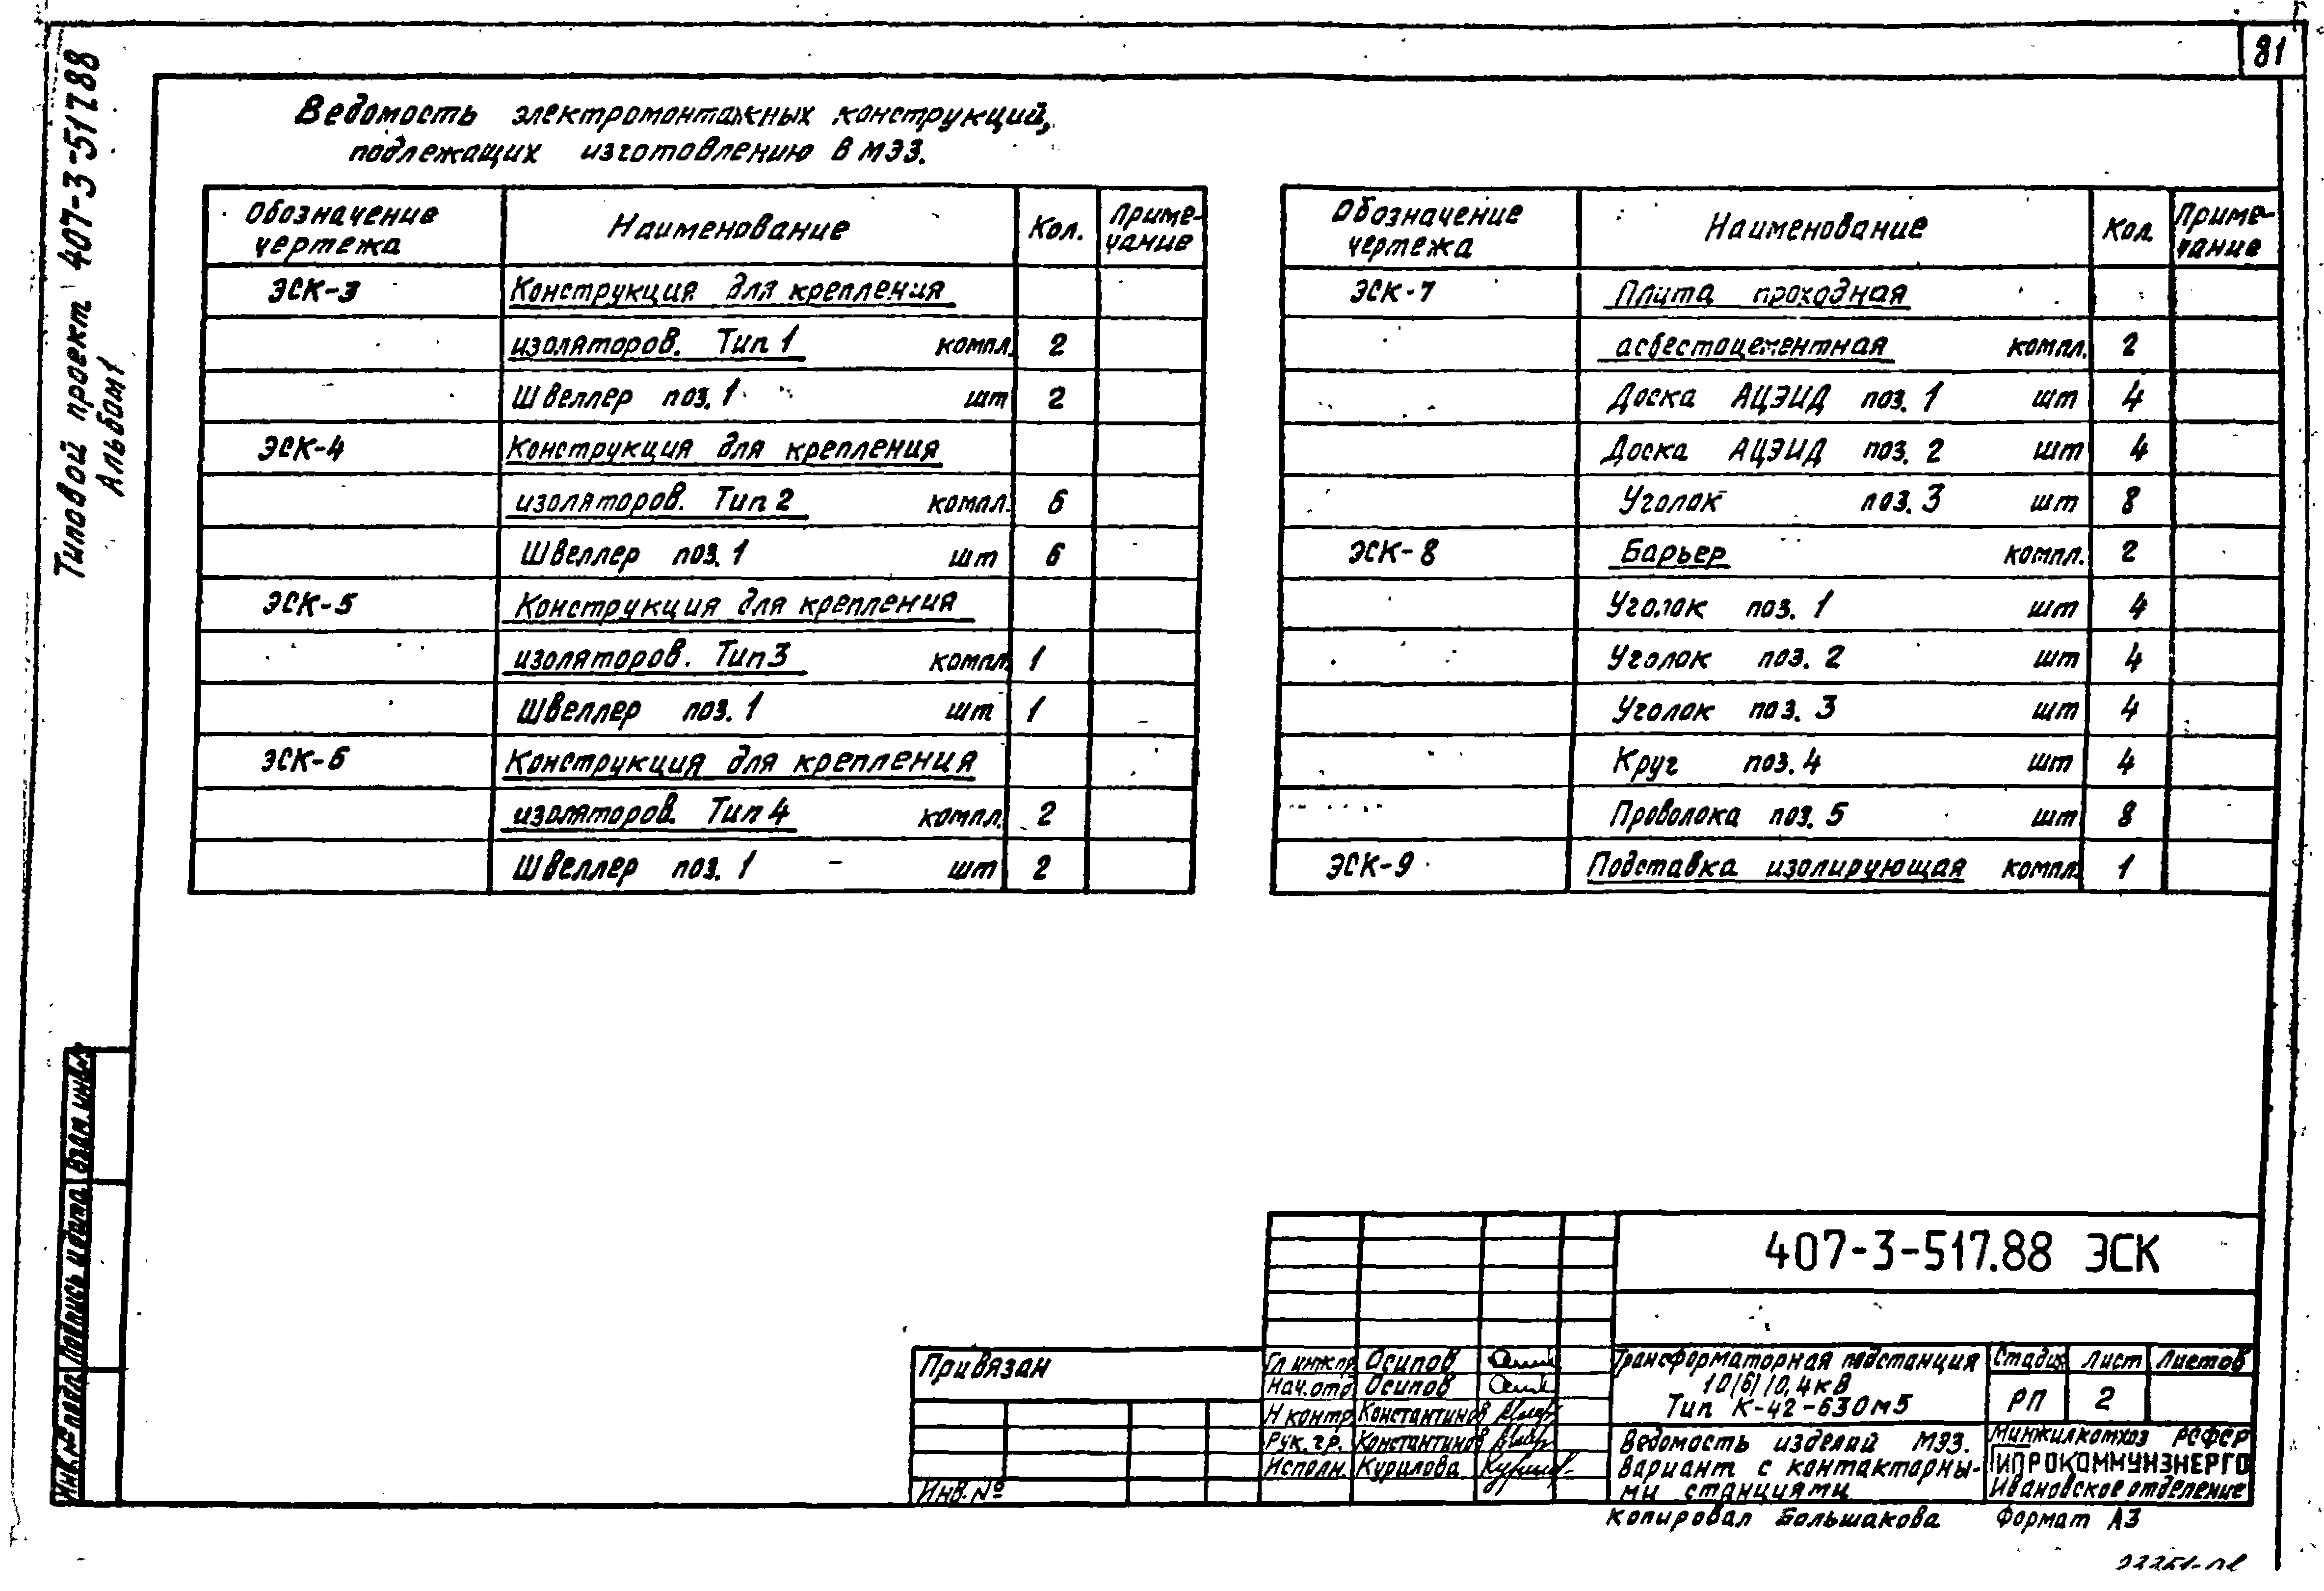 81
Типовой проект 407-3-517.88
Альбом 1
Ведомость электромонтажных конструкций,
подлежащих изготовлению в МЭЗ.
Обозначение чертежа Наименование Кол. Приме-чание
ЭСК-3 Конструкция для крепления
изоляторов. Тип 1 компл. 2
Швеллер поз. 1 шт 2
ЭСК-4 Конструкция для крепления
изоляторов. Тип 2 компл. 6
Швеллер поз. 1 шт 6
ЭСК-5 Конструкция для крепления
изоляторов. Тип 3 компл. 1
Швеллер поз. 1 шт 1
ЭСК-6 Конструкция для крепления
изоляторов. Тип 4 компл. 2
Швеллер поз. 1 шт 2
Обозначение чертежа Наименование Кол. Приме-чание
ЭСК-7 Плита проходная
асбестоцементная компл. 2
Доска АЦЭИД поз. 1 шт 4
Доска АЦЭИД поз. 2 шт 4
Уголок поз. 3 шт 8
ЭСК-8 Барьер компл. 2
Уголок поз. 1 шт 4
Уголок поз. 2 шт 4
Уголок поз. 3 шт 4
Круг поз. 4 шт 4
Проволока поз. 5 шт 8
ЭСК-9 Подставка изолирующая компл. 1
Инв.№ подл. Подпись и дата Взам. инв.№
407-3-517.88 ЭСК
Привязан
Инв. №
Гл.инж.пр. Осипов
Нач.отд. Осипов
Н контр. Константинов
Рук.гр. Константинов
Исполн. Курилова
Трансформаторная подстанция
10(6)/0,4кВ
Тип К-42-630м5
Стадия Лист Листов
РП 2
Ведомость изделий МЭЗ.
Вариант с контакторны-
ми станциями
Минжилкомхоз РСФСР
ГИПРОКОММУНЭНЕРГО
Ивановское отделение
Копировал Большакова Формат А3